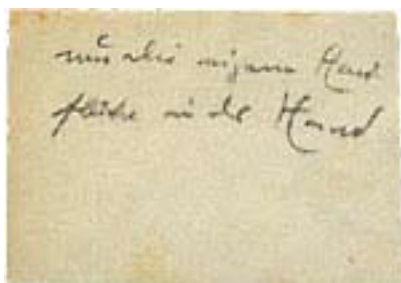 nur die eigene Hand
fläche in der Hand